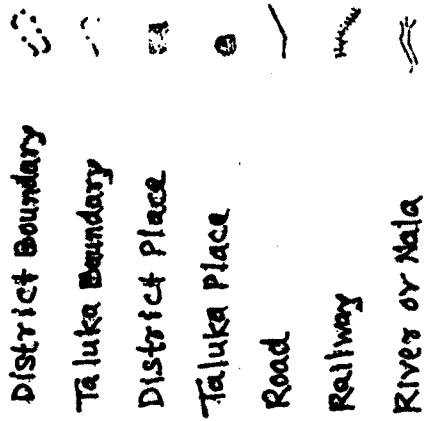 District Boundary
Taluka Boundary
District Place
Taluka Place
Road
Railway
River or Nala